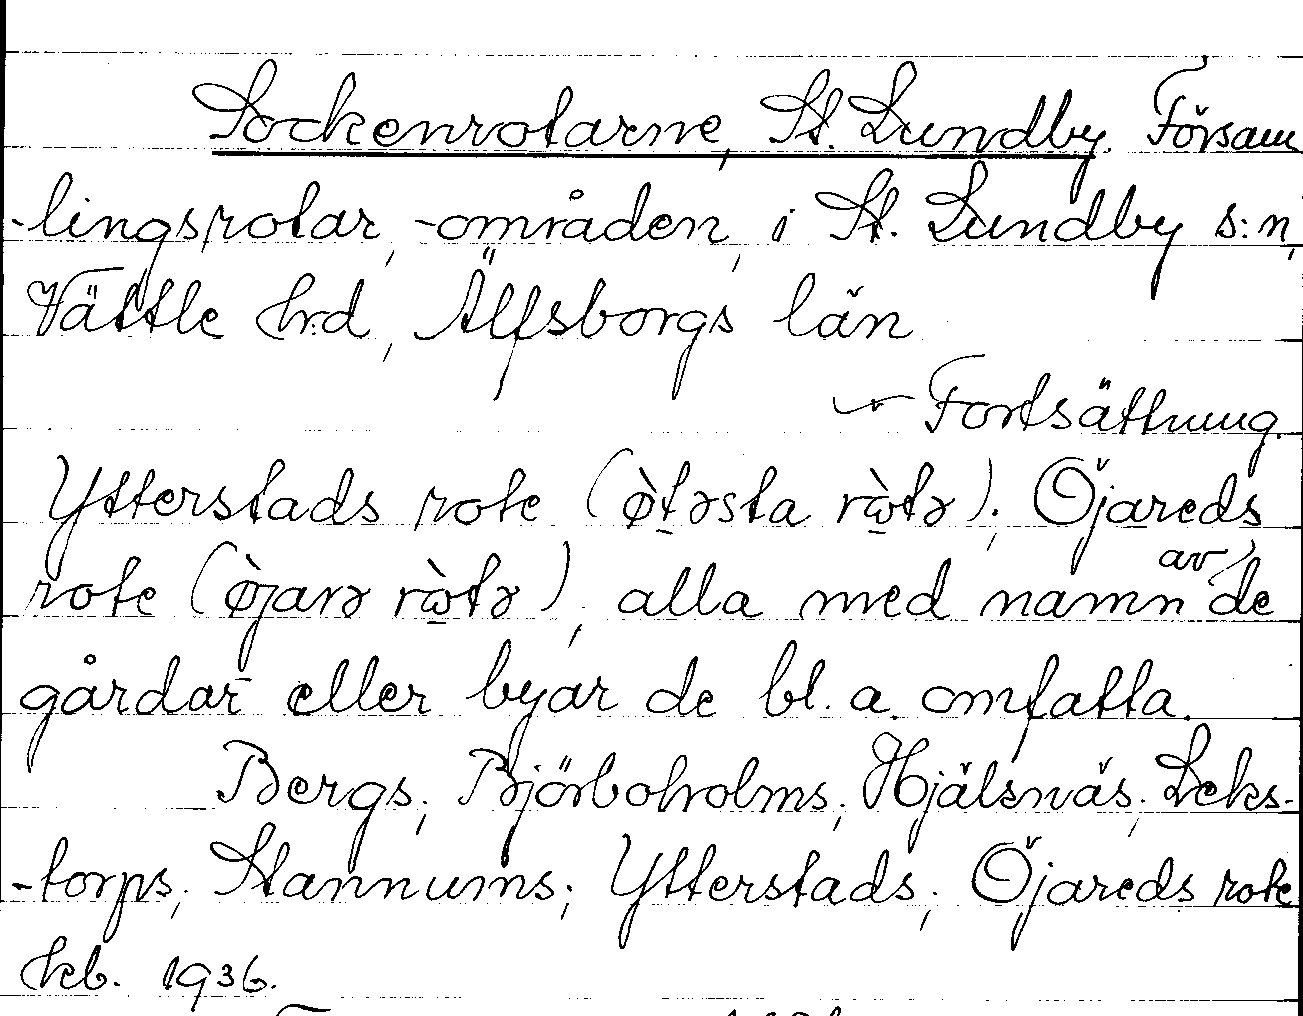 Sockenrotarne, St. Lundby. Försam
-lingsrotar, -områden, i St. Lundby s:n,
Vättle hrd, Älfsborgs län
Fortsättning.
Ytterstads rote (ø̀t̠əsta rὼ̠tə); Öjareds
rote (ø̀jarə rὼ̠tə), alla med namn av de
gårdar eller byar de bl. a. omfatta.
Bergs; Björboholms; Hjälsnäs; Leks-
-torps; Stannums; Ytterstads; Öjareds rote
hkb. 1936.